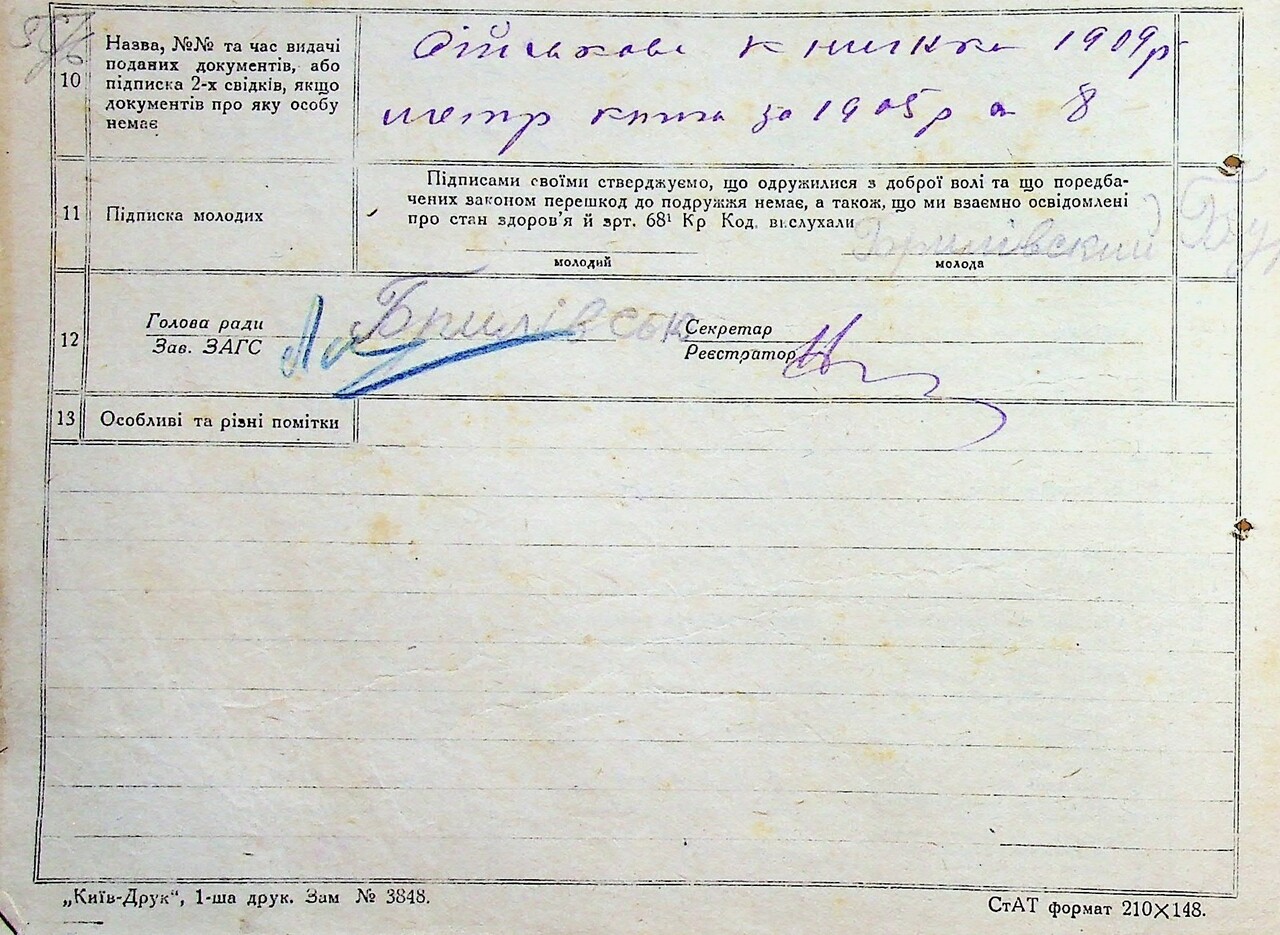 10
Назва, №№ та час видачі
поданих документів, або
підписка 2-х свідків, якщо
документів про яку особу
немає
Військова книжка 1909 р
метр книга за 1905 р а 8
11
Підписка молодих
Підписами своїми стверджуємо, що одружилися з доброї волі та що поредба-
чених законом перешкод до подружжя немає, а також, що ми взаємно освідомлені
про стан здоров'я й зрт. 68¹ Кр Код. вислухали
молодий
молода
12
Голова ради
Зав. ЗАГС
Секретар
Реєстратор
13
Особливі та різні помітки
„Київ-Друк“, 1-ша друк. Зам № 3848.
СтАТ формат 210×148.